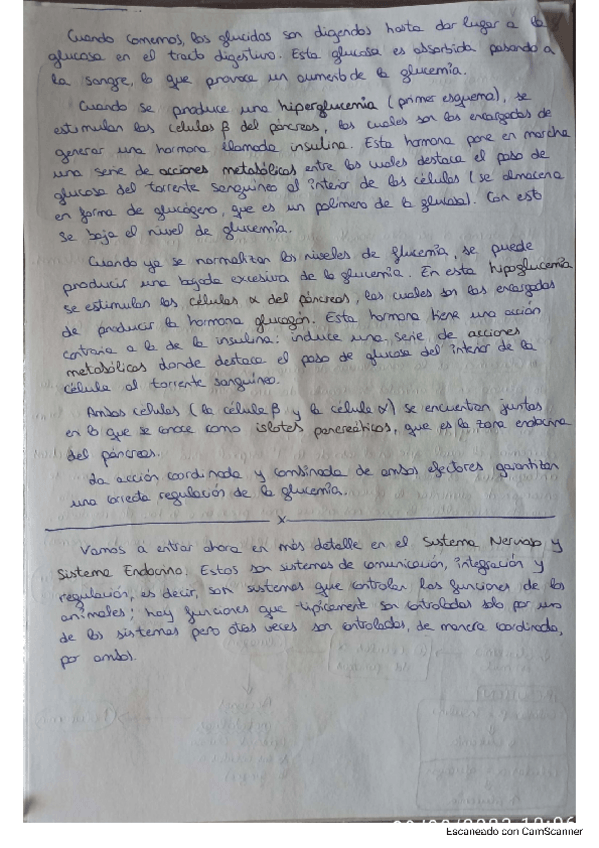 Cuando comemos, los glúcidos son digeridos hasta dar lugar a la
glucosa en el tracto digestivo. Esta glucosa es absorbida pasando a
la sangre, lo que provoca un aumento de la glucemia.
Cuando se produce una hiperglucemia (primer esquema), se
estimulan las células β del páncreas, las cuales son las encargadas de
generar una hormona llamada insulina. Esta hormona pone en marcha
una serie de acciones metabólicas entre las cuales destaca el paso de
glucosa del torrente sanguíneo al interior de las células (se almacena
en forma de glucógeno, que es un polímero de la glucosa). Con esto
se baja el nivel de glucemia.
Cuando ya se normalizan los niveles de glucemia, se puede
producir una bajada excesiva de la glucemia. En esta hipoglucemia
se estimulan las células α del páncreas, las cuales son las encargadas
de producir la hormona glucagón. Esta hormona tiene una acción
contraria a la de la insulina: induce una serie de acciones
metabólicas donde destaca el paso de glucosa del interior de la
célula al torrente sanguíneo.
Ambas células (la célula β y la célula α) se encuentran juntas
en lo que se conoce como islotes pancreáticos, que es la zona endocrina
del páncreas.
La acción coordinada y combinada de ambos efectores garantizan
una correcta regulación de la glucemia.
x
Vamos a entrar ahora en más detalle en el Sistema Nervioso y
Sistema Endocrino. Estos son sistemas de comunicación, integración y
regulación, es decir, son sistemas que controlan las funciones de los
animales; hay funciones que típicamente son controladas solo por uno
de los sistemas pero otras veces son controladas, de manera coordinada,
por ambos.
Escaneado con CamScanner